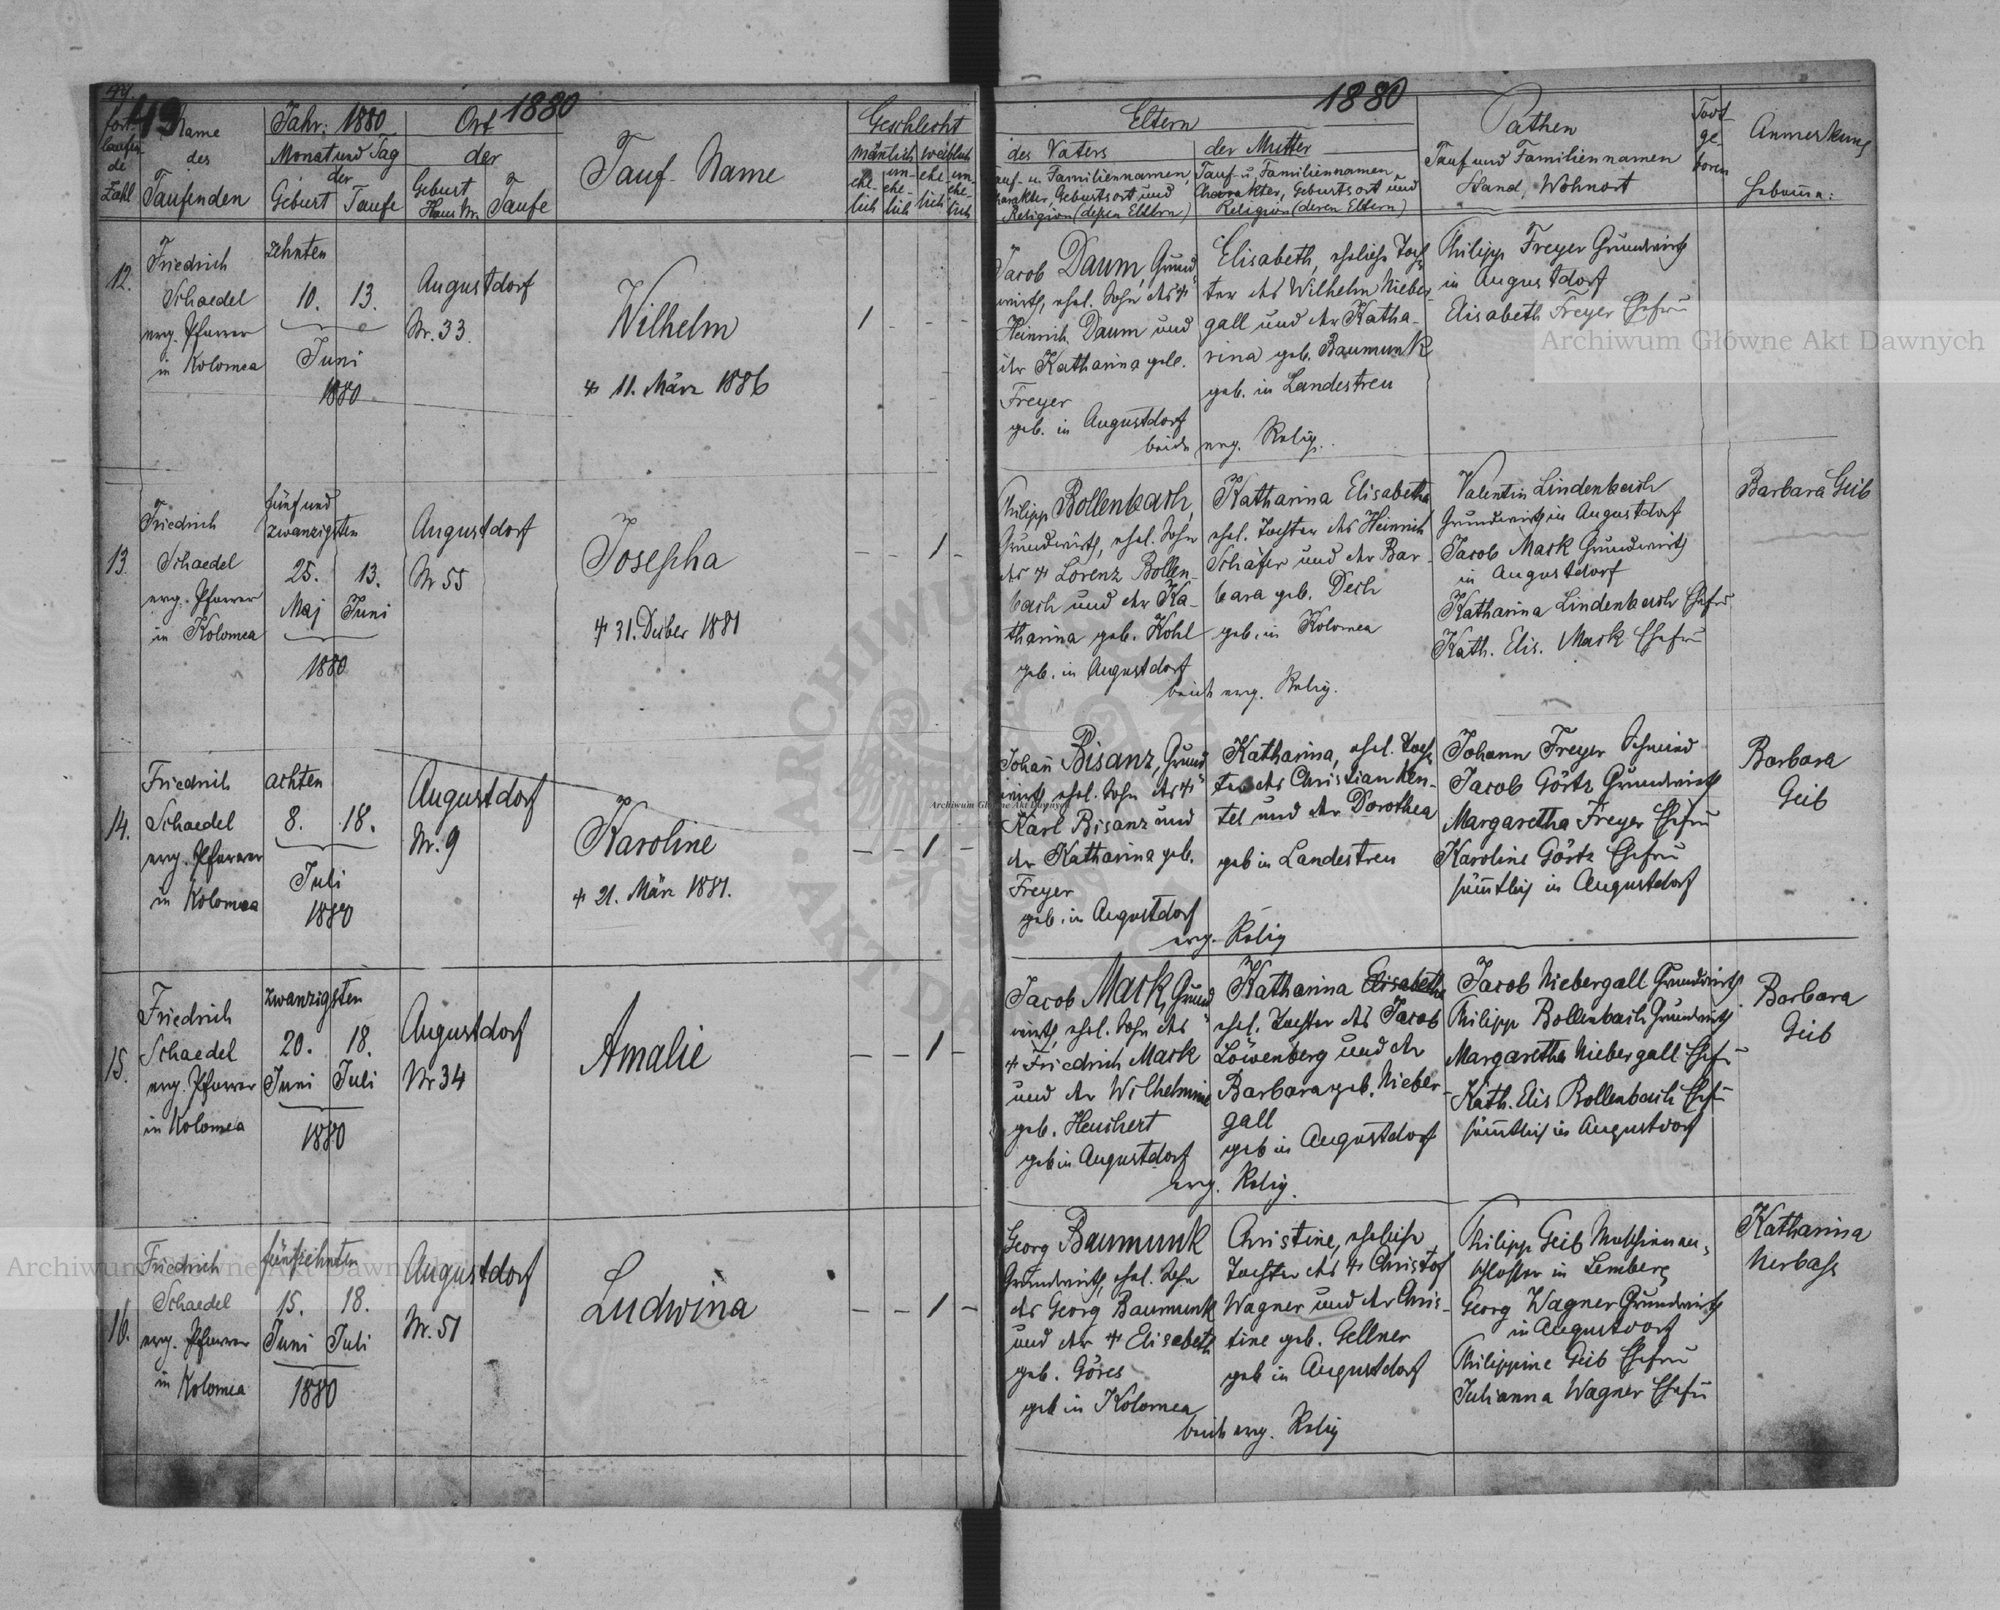 49
1880
fort-
laufen-
de
Zahl
Name
des
Taufenden
Jahr: 1880
Monat und Tag
der
Geburt
Taufe
Ort
der
Geburt
Haus Nr.
Taufe
Tauf-Name
Geschlecht
mänlich
weiblich
ehe-
lich
un-
ehe-
lich
ehe-
lich
un-
ehe-
lich
1880
Eltern
des Vaters
Tauf- u. Familiennamen,
Charakter, Geburtsort und
Religion (deßen Eltern)
der Mutter
Tauf- u. Familiennamen
Charakter, Geburtsort und
Religion (deren Eltern)
Pathen
Tauf und Familiennamen
Stand, Wohnort
Todt
ge-
boren
Anmerkung
Hebamme:
12.
Friedrich
Schaedel
evg. Pfarrer
in Kolomea
zehnten
10. 13.
Juni
1880
Augustdorf
Nr. 33
Wilhelm
11. März 1886
1 - - -
Jacob Daum, Grund-
wirth, ehel. Sohn des
Heinrich Daum und
der Katharina geb.
Freyer
geb. in Augustdorf
Elisabeth, eheliche Toch-
ter des Wilhelm Nieber-
gall und der Katha-
rina geb. Baumunk
geb. in Landestreu
beide evg. Relig.
Philipp Freyer Grundwirth
in Augustdorf
Elisabeth Freyer Ehefrau
13.
Friedrich
Schaedel
evg. Pfarrer
in Kolomea
fünf und
zwanzigsten
25. 13.
Maj Juni
1880
Augustdorf
Nr 55
Josepha
31. Dezber 1881
- - 1 -
Philipp Bollenbach,
Grundwirth, ehel. Sohn
des Lorenz Bollen-
bach und der Ka-
tharina geb. Kohl
geb. in Augustdorf
Katharina Elisabetha
ehel. Tochter des Heinrich
Schäfer und der Bar-
bara geb. Desch
geb. in Kolomea
beide evg. Relig.
Valentin Lindenbach
Grundwirth in Augustdorf
Jacob Mack Grundwirth
in Augustdorf
Katharina Lindenbach Ehefrau
Kath. Elis. Mack Ehefrau
Barbara Geib
14.
Friedrich
Schaedel
evg. Pfarrer
in Kolomea
achten
8. 18.
Juli
1880
Augustdorf
Nr. 9
Karoline
21. März 1881.
- - 1 -
Johann Bisanz, Grund-
wirth, ehel. Sohn des
Karl Bisanz und
der Katharina geb.
Freyer
geb. in Augustdorf
Katharina, ehel. Toch-
ter des Christian Ken-
tel und der Dorothea
geb in Landestreu
evg. Relig
Johann Freyer Schmied
Jacob Görtz Grundwirth
Margaretha Freyer Ehefrau
Karoline Görtz Ehefrau
sämmtlich in Augustdorf
Barbara
Geib
15.
Friedrich
Schaedel
evg. Pfarrer
in Kolomea
zwanzigsten
20. 18.
Juni Juli
1880
Augustdorf
Nr 34
Amalie
- - 1 -
Jacob Mack, Grund-
wirth, ehel. Sohn des
Friedrich Mack
und der Wilhelmine
geb. Heuchert
geb in Augustdorf
Katharina Elisabetha
ehel. Tochter des Jacob
Löwenberg und der
Barbara geb. Nieber-
gall
geb in Augustdorf
evg. Relig.
Jacob Niebergall Grundwirth
Philipp Bollenbach Grundwirth
Margaretha Niebergall Ehefr
Kath. Elis Bollenbach Ehefr
sämmtlich in Augustdorf
Barbara
Geib
16.
Friedrich
Schaedel
evg. Pfarrer
in Kolomea
fünfzehnten
15. 18.
Juni Juli
1880
Augustdorf
Nr. 51
Ludwina
- - 1 -
Georg Baumunk
Grundwirth, ehel. Sohn
des Georg Baumunk
und der Elisabeth
geb. Göres
geb in Kolomea
Christine, eheliche
Tochter des Christof
Wagner und der Chris-
tine geb. Gellner
geb in Augustdorf
beide evg. Relig
Philipp Geib Maschinen-
schlosser in Lemberg
Georg Wagner Grundwirth
in Augustdorf
Philippine Geib Ehefrau
Julianna Wagner Ehefrau
Katharina
Nerbass
Archiwum Główne Akt Dawnych
Archiwum Główne Akt Dawnych
Archiwum Główne Akt Dawnych